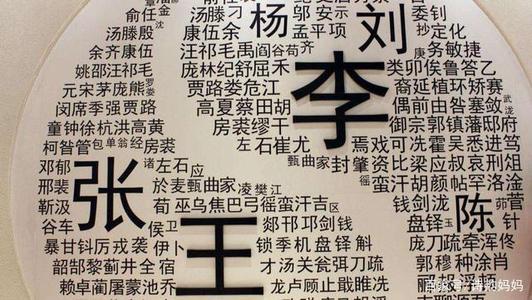 俞任金
杨
邬安示
委钊
刘
汤滕刁
抄定化
汤滕殷
康伍余
孟平项
余齐康伍
汪祁毛禹阎谷苟齐
务敏捷
姚邵汪祁毛
庞林纪舒屈禾
李
类卯侯鲁答乙
元宋茅庞熊
贾路娄危江
裔延植环矫赛
闵席季强贾路
高夏蔡田胡
偶前由咎塞敛
童钟徐杭洪高黄
房裘缪干
御宗郭镇藩邸府
柯昝管包单翁经房裘
左石崔尤
焉戏可冼霍吴悉进笃
甄曲家封肇资比梁应叔哀刑狙
邓郁
张
诸左石应
蛮汗胡颜帖罕洛淦
邢裴
於麦甄曲家凌樊江
靳汲
荀巫乌焦巴弓徭蛮汗吉区
钱剑泷
陈
谷车
侯卫
王
郯邗邛剑钱
盘铎玉
针
暴甘钭厉戎袭伊卜
锁季机盘铎斛
庞刀疏牵浑佟
韶郜黎蓟井全宿
才汤关瓮弭刀疏
郭穆种涂肖
赖卓蔺屠蒙池乔
龙卢顾止戢睢冼
百家号/博约妈妈